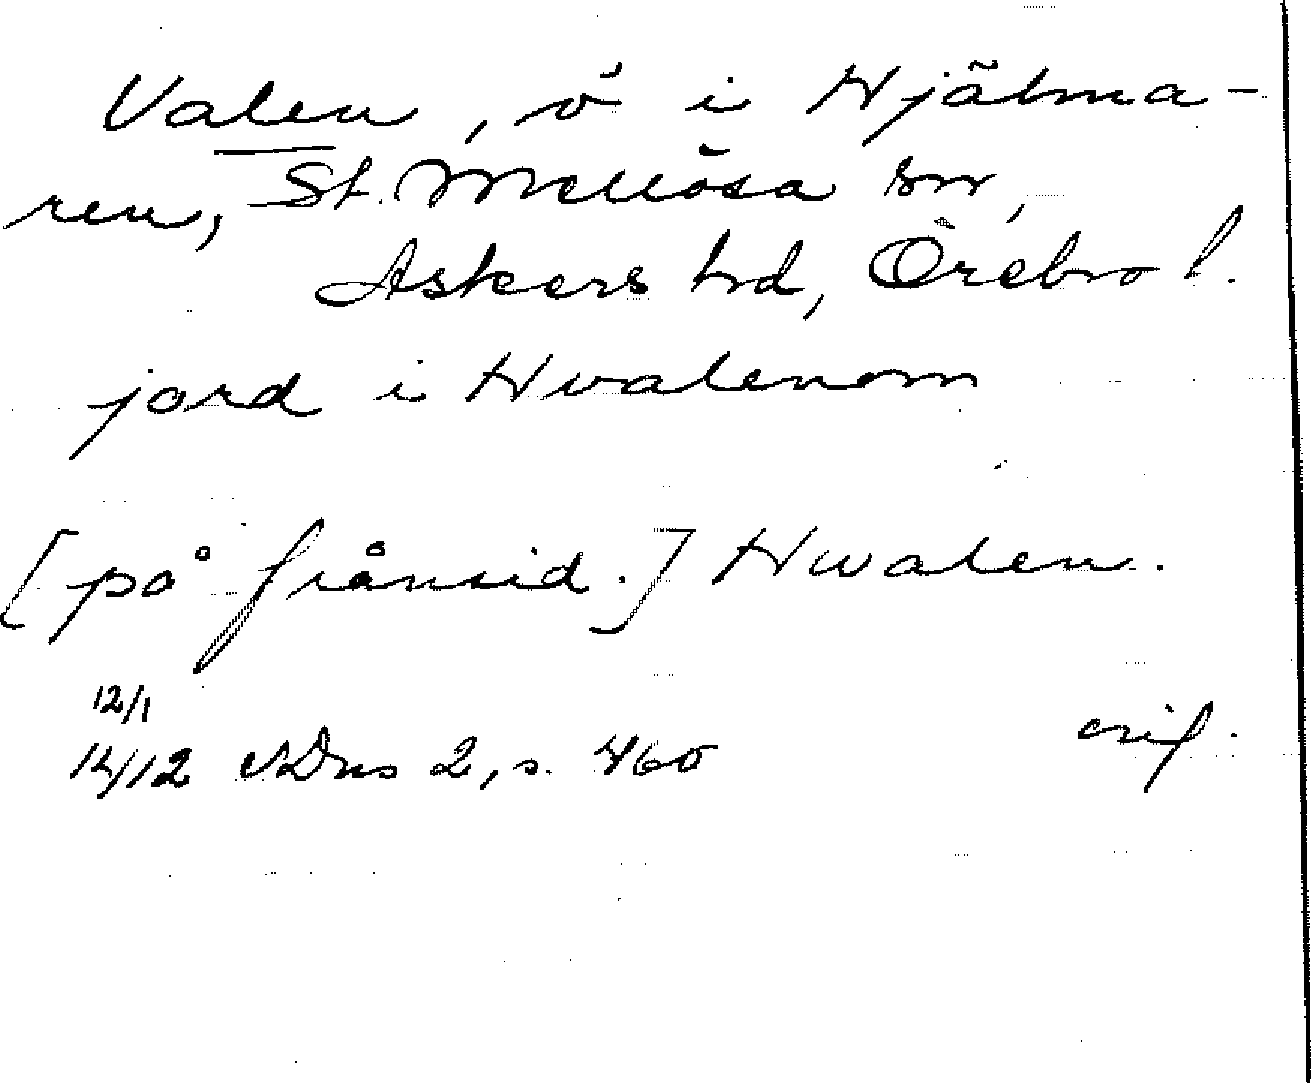 Valen, ö i Hjälma-
ren, St. Mellösa sn,
Askers hd, Örebro l.
jord i Hvalenom
[på frånsid.] Hwalen.
12/1
1412 SDns 2, s. 460 orig.